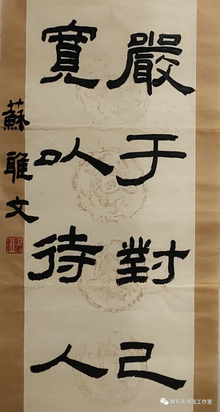 嚴于對己
寬以待人
蘇雅文